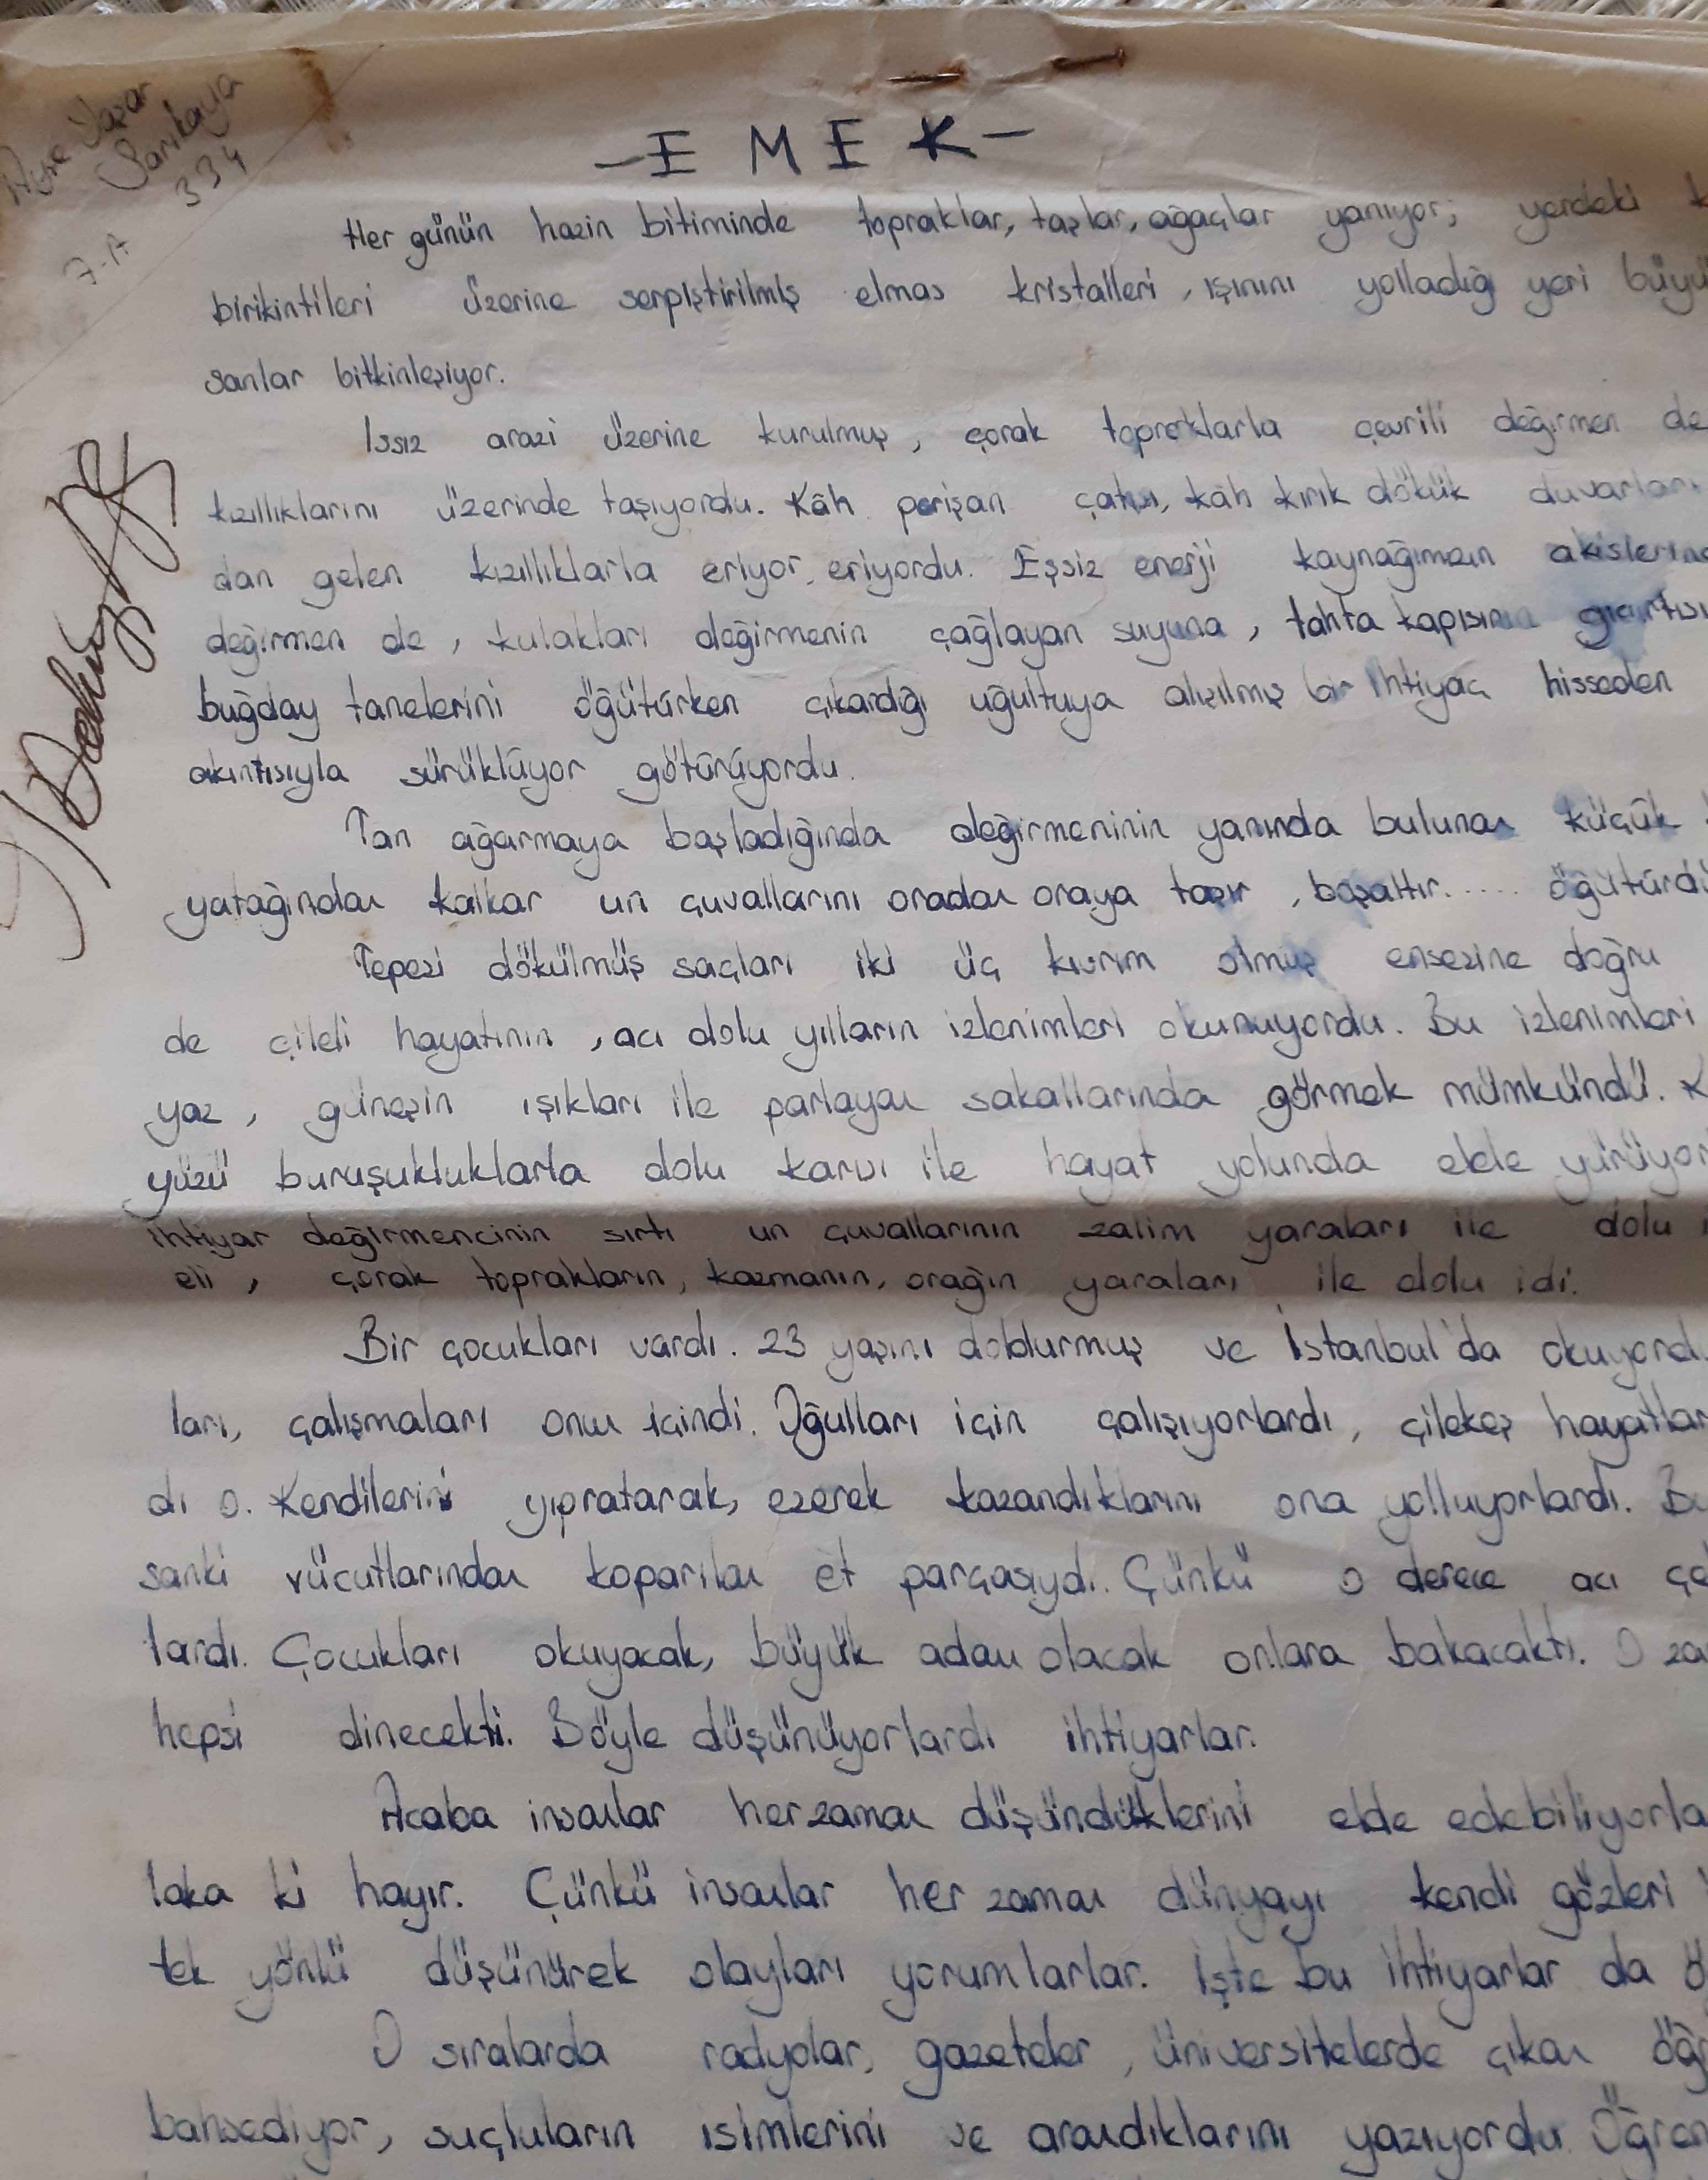 Yaşar
Sarıkaya
334
7-A
- E M E K -
Her günün hazin bitiminde topraklar, taşlar, ağaçlar yanıyor; yerdeki
birikintileri üzerine serpiştirilmiş elmas kristalleri, ışınını yolladığı yeri büyü
sanlar bitkinleşiyor.
Issız arazi üzerine kurulmuş, çorak topraklarla çevrili değirmen de
kızıllıklarını üzerinde taşıyordu. Kâh perişan çatısı, kâh kırık dökük duvarları
dan gelen kızıllıklarla eriyor, eriyordu. Eşsiz enerji kaynağımızın akislerine
değirmen de, kulakları değirmenin çağlayan suyuna, tahta kapısının gıcırtısı
buğday tanelerini öğütürken çıkardığı uğultuya alışılmış bir ihtiyaç hisseden
akıntısıyla sürüklüyor götürüyordu.
Tan ağarmaya başladığında değirmeninin yanında bulunan küçük
yatağından kalkar un çuvallarını oradan oraya taşır, boşaltır..... öğütürdü
Tepesi dökülmüş saçları iki üç kıvrım olmuş ensesine doğru
de çileli hayatının, acı dolu yılların izlenimleri okunuyordu. Bu izlenimleri
yaz, güneşin ışıkları ile parlayan sakallarında görmek mümkündü. K
yüzü buruşukluklarla dolu karısı ile hayat yolunda elele yürüyor
ihtiyar değirmencinin sırtı un çuvallarının zalim yaraları ile dolu i
eli, çorak toprakların, kazmanın, orağın yaraları ile dolu idi.
Bir çocukları vardı. 23 yaşını doldurmuş ve İstanbul'da okuyordu
ları, çalışmaları onun içindi. Oğulları için çalışıyorlardı, çilekeş hayatlar
dı o. Kendilerini yıpratarak, ezerek kazandıklarını ona yolluyorlardı. Bu
sanki vücutlarından koparılan et parçasıydı. Çünkü o derece acı çe
lardı. Çocukları okuyacak, büyük adam olacak onlara bakacaktı. O za
hepsi dinecekti. Böyle düşünüyorlardı ihtiyarlar.
Acaba insanlar herzaman düşündüklerini elde edebiliyorla
laka ki hayır. Çünkü insanlar her zaman dünyayı kendi gözleri
tek yönlü düşünürek olayları yorumlarlar. İşte bu ihtiyarlar da ö
O sıralarda radyolar, gazeteler, üniversitelerde çıkan öğr
bahsediyor, suçluların isimlerini ve arandıklarını yazıyordu. Öğren